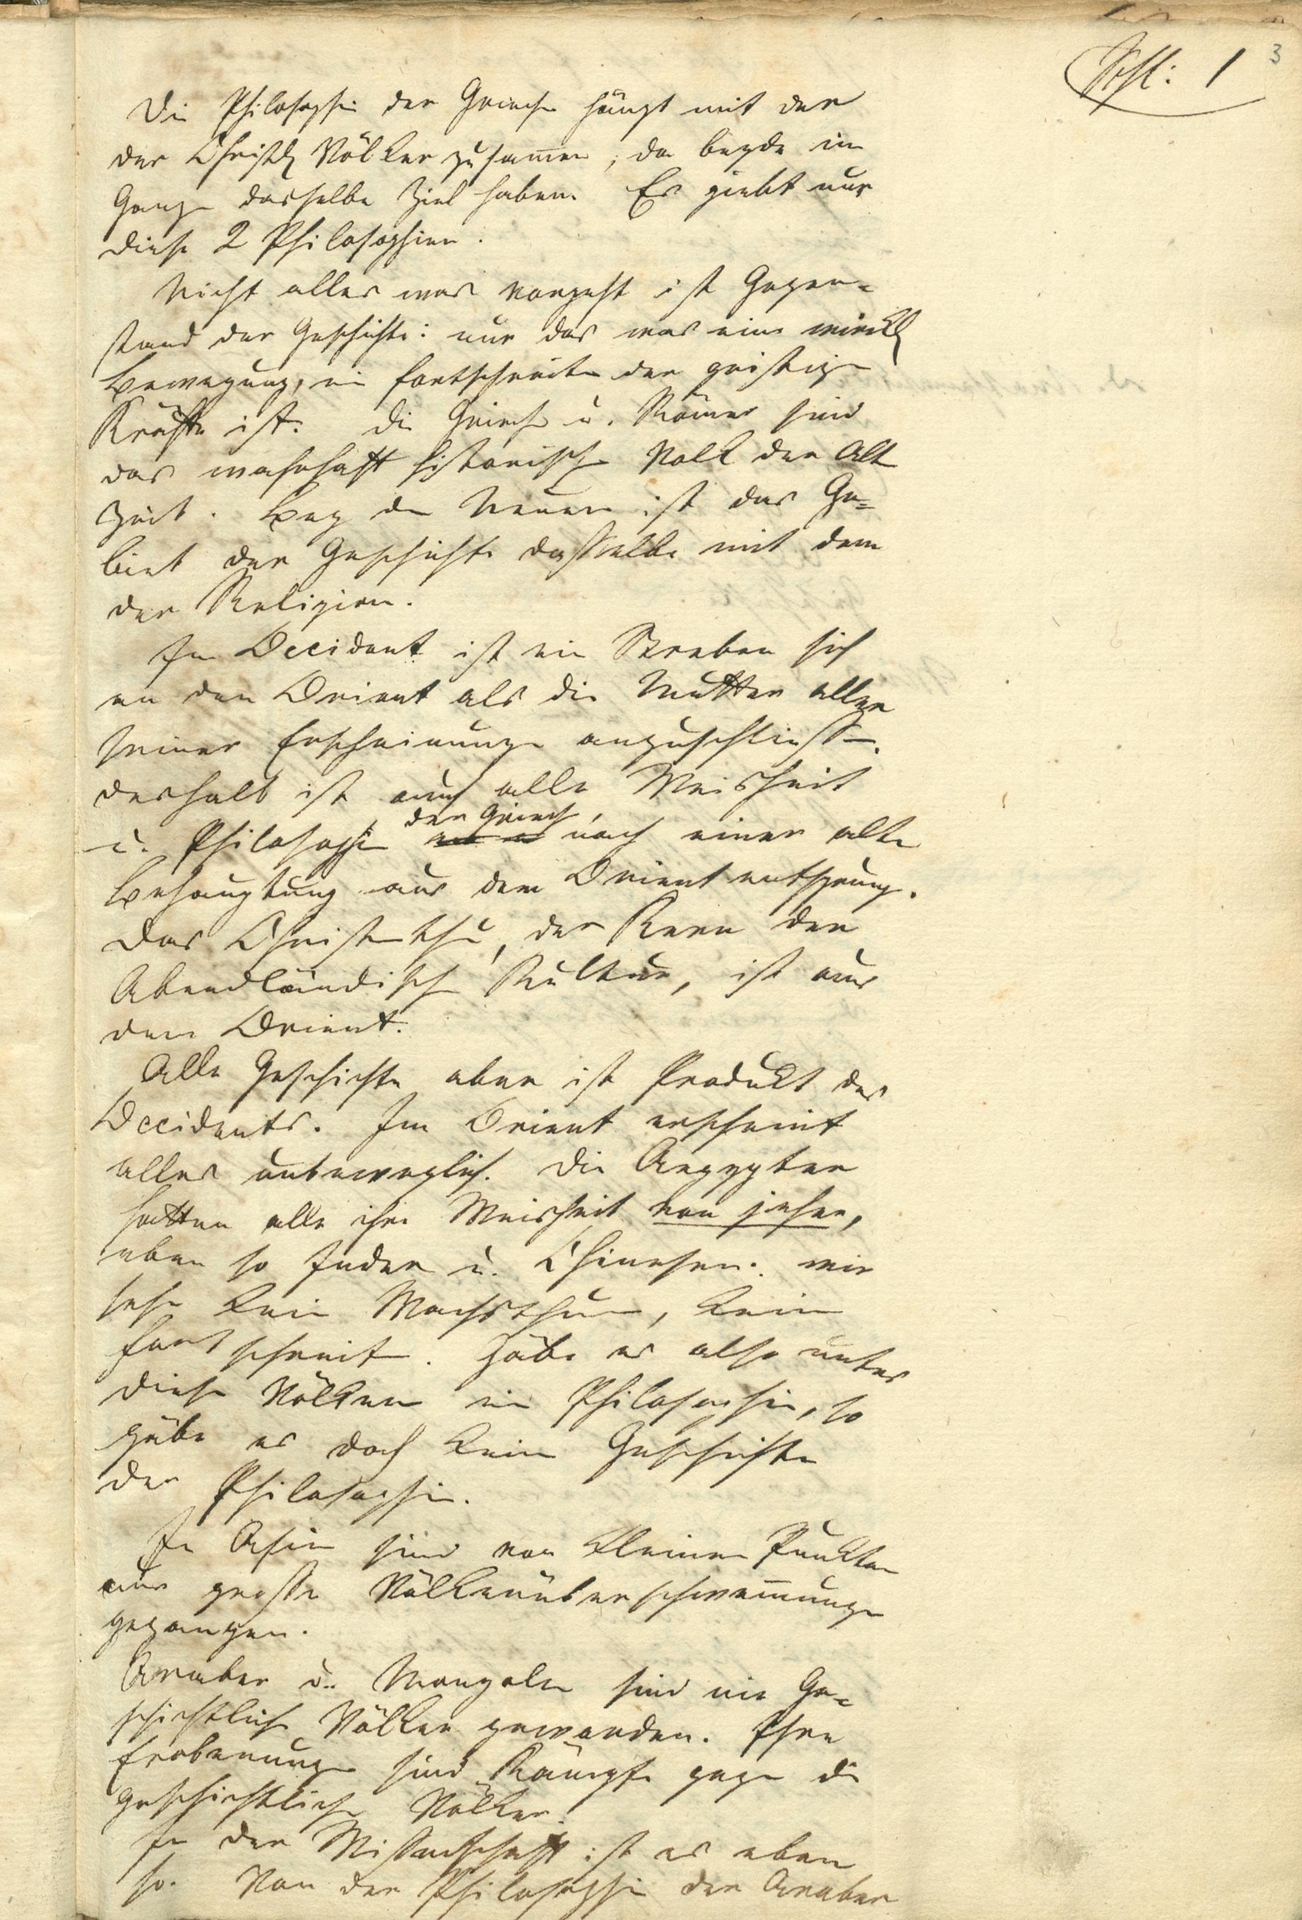 Schl: 1 3
Die Philosophie der Grieche hängt mit der
der Christl Völker zusamen, da beyde im
Ganze dasselbe Ziel haben. Es giebt nur
diese 2 Philosophien.
Nicht alles was vorgeht ist Gegen=
stand der Geschichte: nur das was eine wirckl
Bewegung, ein fortschreite der geistige
Kräfte ist. Die Grieche u. Römer sind
das wahrhaft historische Volk der Alt
Zeit. Bey den Neuern ist das Ge=
biet der Geschichte dasselbe mit dem
der Religion.
Im Occident ist ein Streben sich
an den Orient als die Mutter aller
seiner Erscheinunge anzuschliesse.
deshalb ist auch alle Weisheit
u. Philosophie der Griech nach einer alte
Behauptung aus dem Orient entsprung.
Das Christenthu, der Kern der
Abendländische Kultur, ist aus
dem Orient.
Alle Geschichte aber ist Produkt des
Occidents. Im Orient erscheint
alles unbeweglich. Die Aegypter
hatten alle ihre Weisheit von jeher,
eben so Inder u. Chinesen. wir
sehe kein Wachsthum, kein
fortschreit. Gäbe es also unter
diese Völkern eine Philosophie, so
gäbe es doch keine Geschichte
der Philosophie.
In Asien sind von kleinen Punkten
aus grosse Völkerüberschwemunge
gegangen.
Araber u. Mongolen sind nie Ge=
schichtliche Völker geworden. Ihre
Eroberunge sind Kämpfe gege die
geschichtliche Völker.
In der Wissenschaft ist es eben
so. Von der Philosophie der Araber